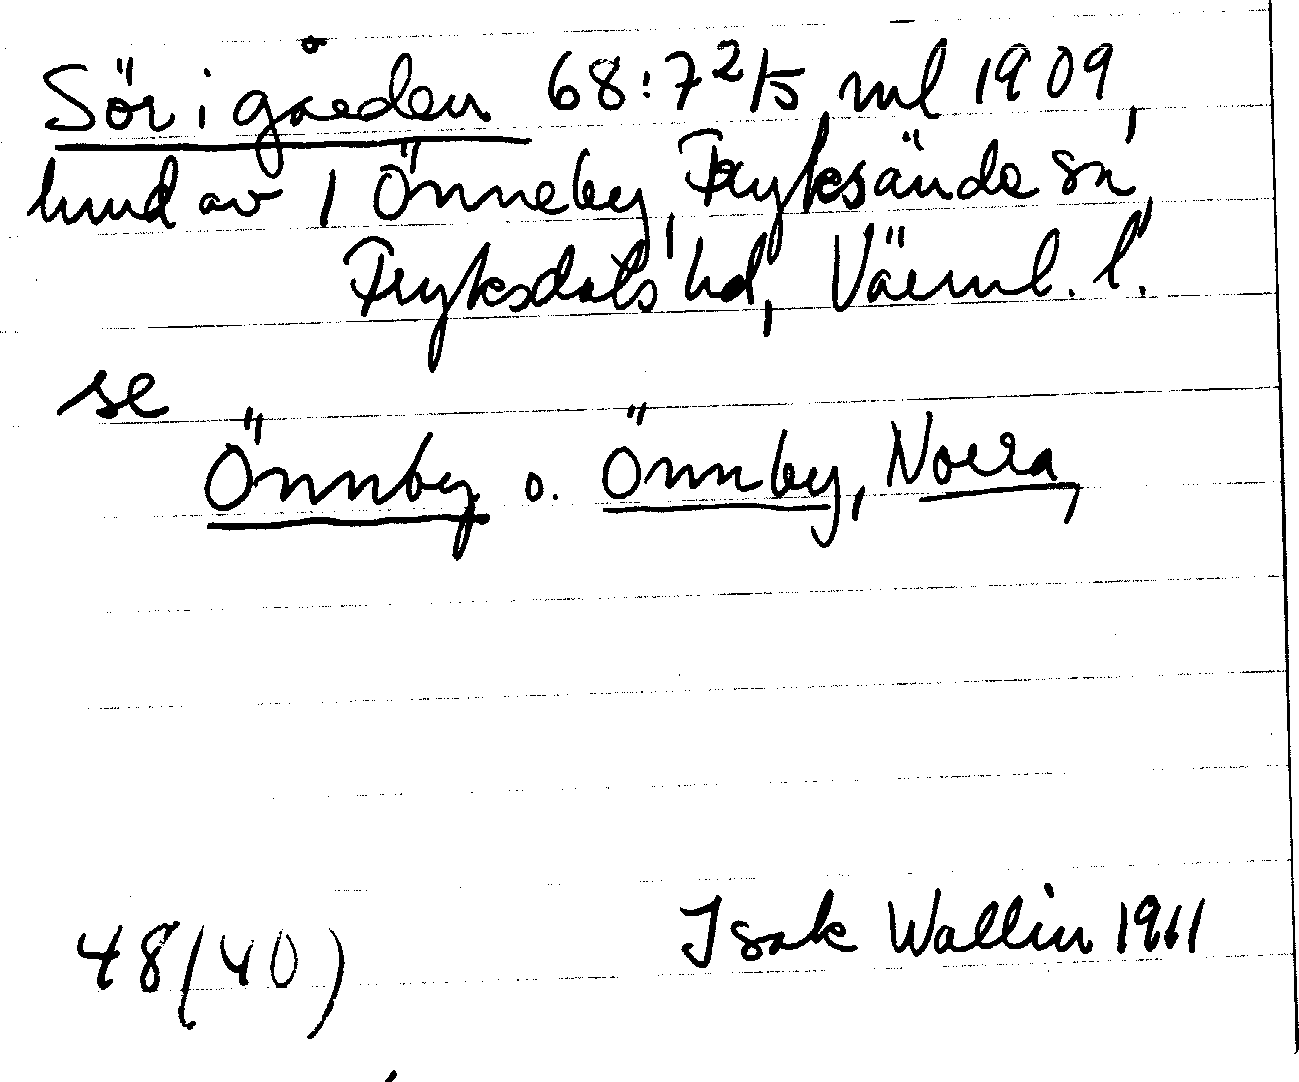 Sör i gården 68:7 2/5 ml 1909,
hmd av 1 Önneby, Fryksände sn,
Fryksdals hd, Värml. l.
se
Önnby o. Önnby, Norra,
48(40) Isak Wallin 1961